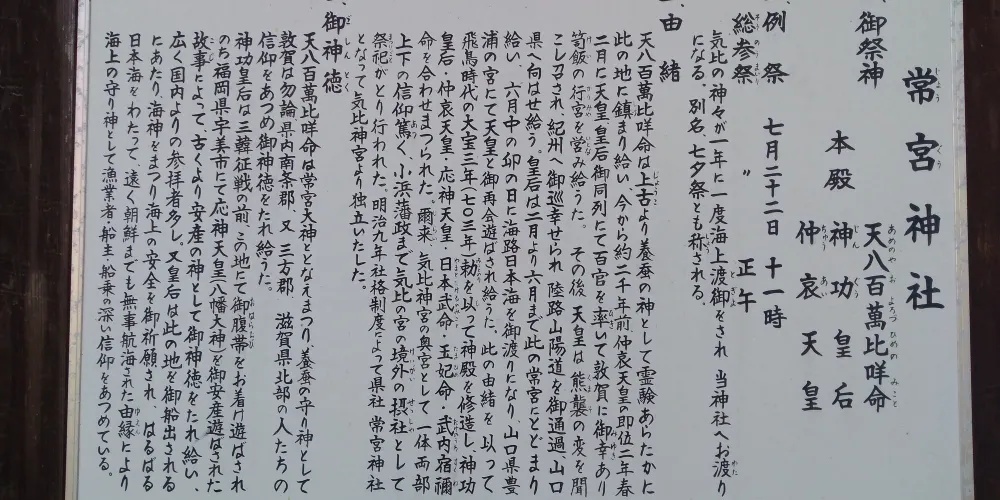 常宮神社
御祭神
天八百萬比咩命
本殿 神功皇后
仲哀天皇
例祭 七月二十二日 十一時
総参祭 〃 正午
気比の神々が一年に一度海上渡御をされ 当神社へお渡り
になる。別名、七夕祭とも称される。
由緒
天八百萬比咩命は上古より養蚕の神として霊験あらたかに
此の地に鎮まり給い、今から約二千年前 仲哀天皇の即位二年春
二月に天皇皇后御同列にて百官を率いて敦賀に御幸あり
笥飯の行宮を営み給うた。その後 天皇は熊襲の変を聞
こし召され、紀州へ御巡幸せられ 陸路山陽道を御通過、山口
県へ向はせ給う。皇后は二月より六月まで此の常宮にとどまり
給い、六月中の卯の日に海路日本海を御渡りになり、山口県豊
浦の宮にて天皇と御再会遊ばされ給うた。此の由緒を以って
飛鳥時代の大宝三年(七〇三年)勅を以って神殿を修造し、神功
皇后・仲哀天皇・応神天皇・日本武命・玉妃命・武内宿禰
命を合わせまつられた。爾来、気比神宮の奥宮として一体両部
上下の信仰篤く、小浜藩政まで気比の宮の境外の摂社として
祭祀がとり行われた。明治九年社格制度によって県社 常宮神社
となって気比神宮より独立いたした。
御神徳
天八百萬比咩命は常宮大神ととなえまつり、養蚕の守り神として
敦賀は勿論県内南条郡 又 三方郡 滋賀県北部の人たちの
信仰をあつめ御神徳をたれ給うた。
神功皇后は三韓征戦の前、この地にて御腹帯をお着け遊ばされ
のち福岡県宇美市にて応神天皇(八幡大神)を御安産遊ばされた
故事によって、古くより安産の神として御神徳をたれ給い、
広く国内よりの参拝者多し、又皇后は此の地を御船出される
にあたり、海神をまつり海上の安全を御祈願され、はるばる
日本海をわたって、遠く朝鮮までも無事航海された由縁により
海上の守り神として漁業者・船主・船乗の深い信仰をあつめている。